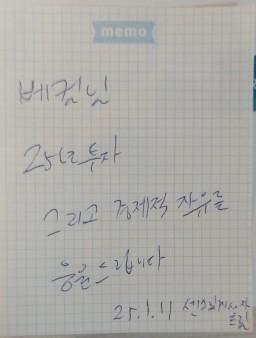 memo
베컴님
25년 투자
그리고 경제적 자유를
응원드립니다
25.1.11